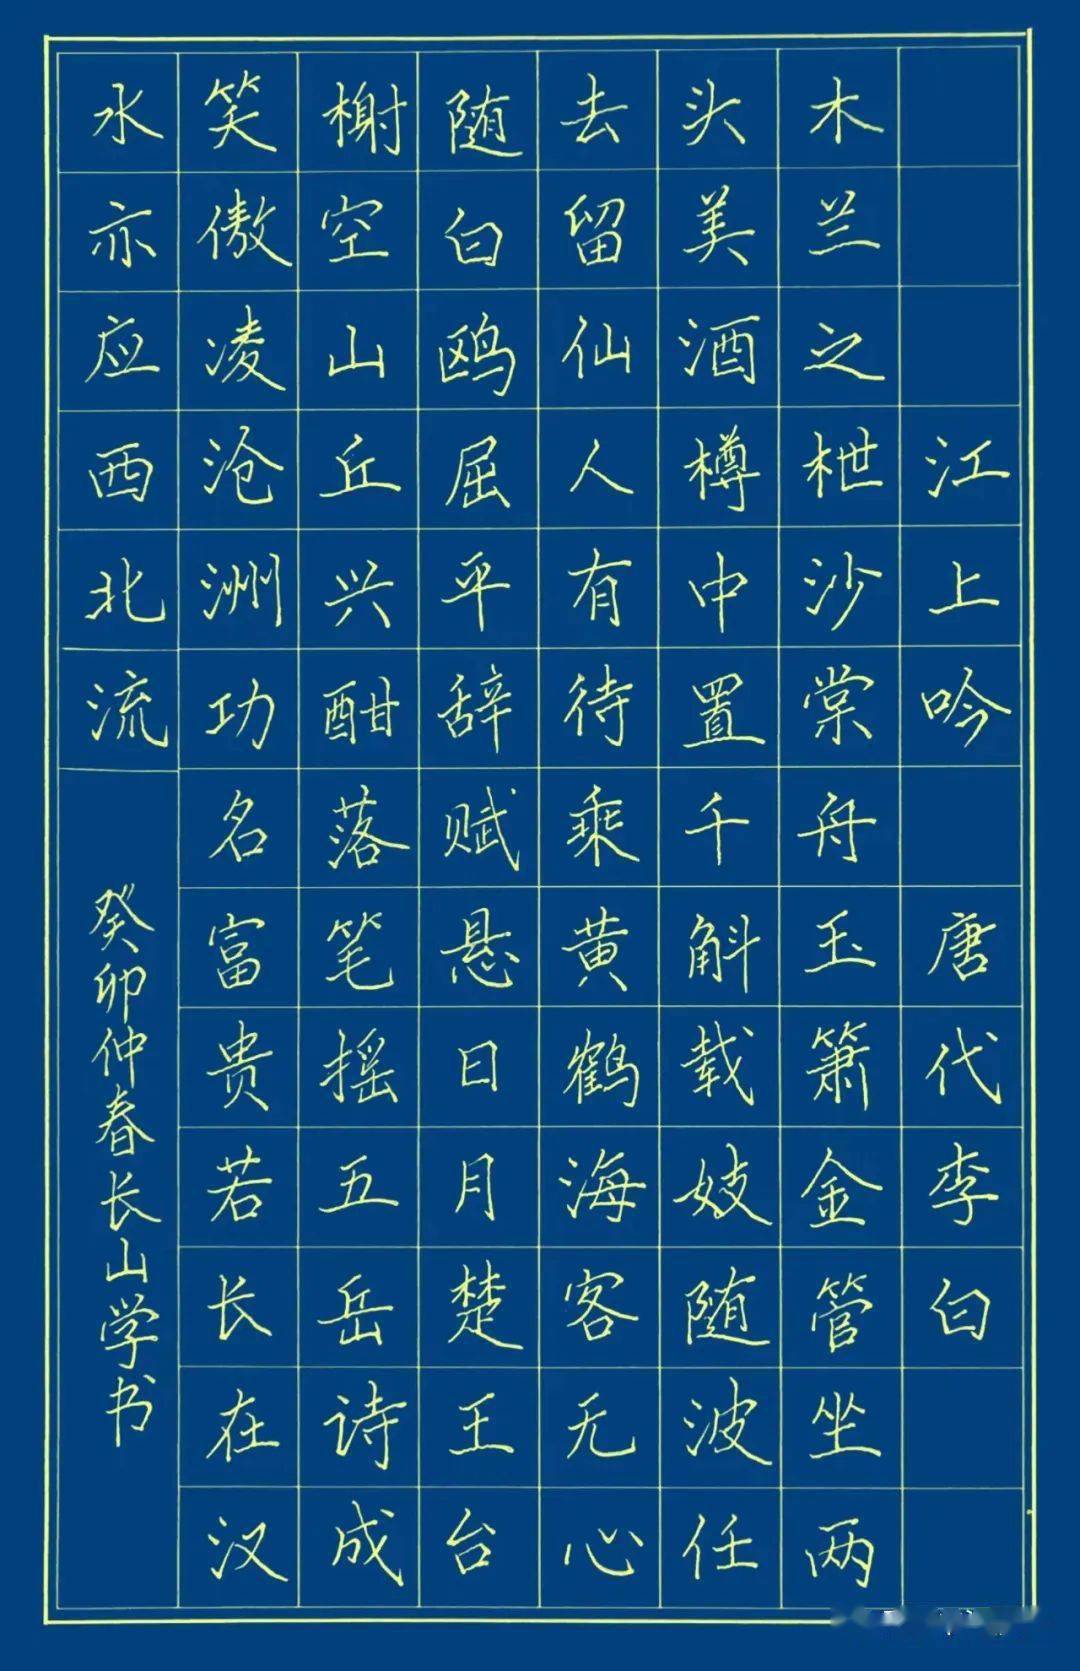 江上吟 唐代李白
木兰之枻沙棠舟玉箫金管坐两
头美酒樽中置千斛载妓随波任
去留仙人有待乘黄鹤海客无心
随白鸥屈平辞赋悬日月楚王台
榭空山丘兴酣落笔摇五岳诗成
笑傲凌沧洲功名富贵若长在汉
水亦应西北流
癸卯仲春长山学书